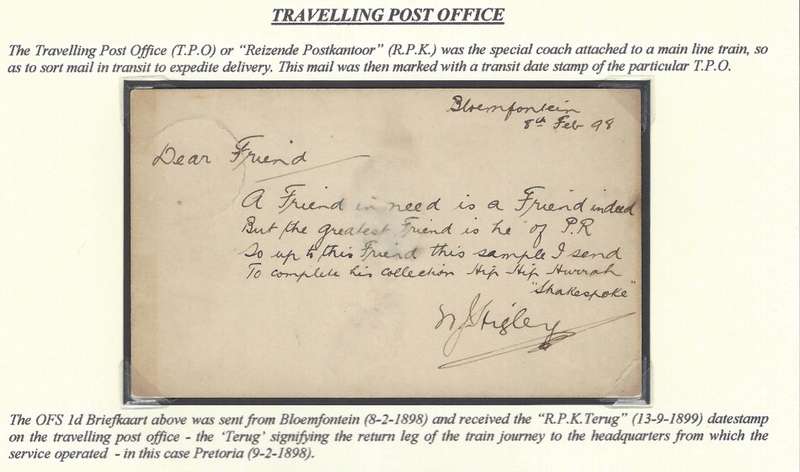 TRAVELLING POST OFFICE
The Travelling Post Office (T.P.O) or “Reizende Postkantoor” (R.P.K.) was the special coach attached to a main line train, so
as to sort mail in transit to expedite delivery. This mail was then marked with a transit date stamp of the particular T.P.O.
Bloemfontein
8th Feb 98
Dear Friend
A Friend in need is a Friend indeed
But the greatest Friend is he of P.R
So up to this Friend this sample I send
To complete his collection Hip Hip Hurrah
"Shakespoke"
Higley
The OFS 1d Briefkaart above was sent from Bloemfontein (8-2-1898) and received the “R.P.K.Terug” (13-9-1899) datestamp
on the travelling post office - the ‘Terug’ signifying the return leg of the train journey to the headquarters from which the
service operated - in this case Pretoria (9-2-1898).